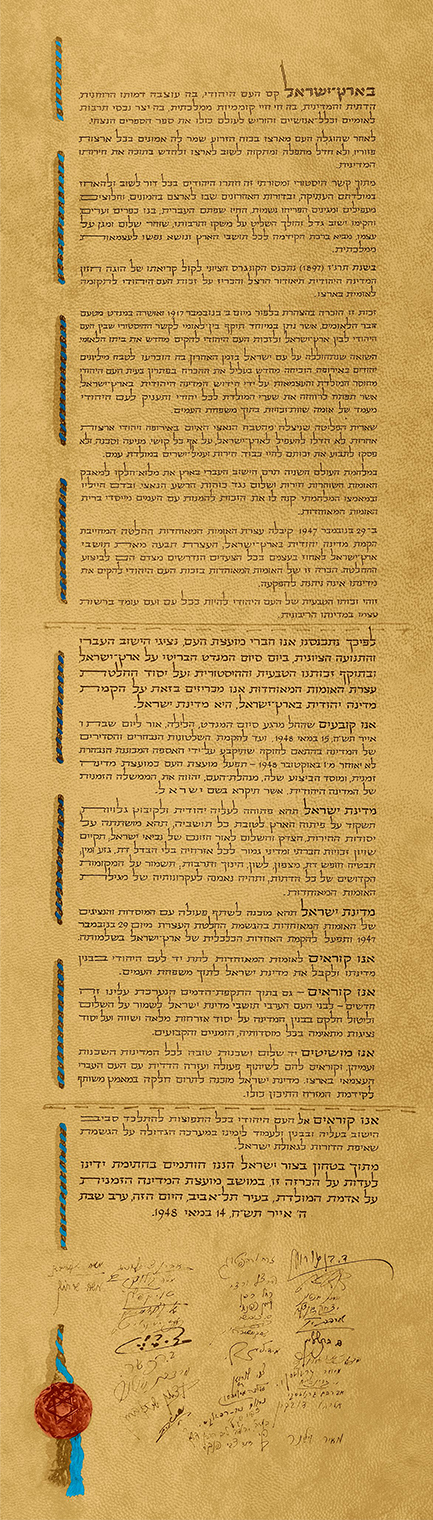 בארץ־ישראל קם העם היהודי, בה עוצבה דמותו הרוחנית,
הדתית והמדינית, בה חי חיי קוממיות ממלכתית, בה יצר נכסי תרבות
לאומיים וכלל־אנושיים והוריש לעולם כולו את ספר הספרים הנצחי.
לאחר שהוגלה העם מארצו בכוח הזרוע שמר לה אמונים בכל ארצות
פזוריו, ולא חדל מתפלה ומתקוה לשוב לארצו ולחדש בתוכה את חירותו
המדינית.
מתוך קשר היסטורי ומסורתי זה חתרו היהודים בכל דור לשוב ולהאחז
במולדתם העתיקה, ובדורות האחרונים שבו לארצם בהמונים, וחלוצים,
מעפילים ומגינים הפריחו נשמות, החיו שפתם העברית, בנו כפרים וערים,
והקימו ישוב גדל והולך השליט על משקו ותרבותו, שוחר שלום ומגן על
עצמו, מביא ברכת הקידמה לכל תושבי הארץ ונושא נפשו לעצמאות
ממלכתית.
בשנת תרנ״ז (1897) נתכנס הקונגרס הציוני לקול קריאתו של הוגה חזון
המדינה היהודית תיאודור הרצל והכריז על זכות העם היהודי לתקומה
לאומית בארצו.
זכות זו הוכרה בהצהרת בלפור מיום ב׳ בנובמבר 1917 ואושרה במנדט מטעם
חבר הלאומים, אשר נתן במיוחד תוקף בין־לאומי לקשר ההיסטורי שבין העם
היהודי לבין ארץ־ישראל ולזכות העם היהודי להקים מחדש את ביתו הלאומי.
השואה שנתחוללה על עם ישראל בזמן האחרון, בה הוכרעו לטבח מיליונים
יהודים באירופה, הוכיחה מחדש בעליל את ההכרח בפתרון בעית העם היהודי
מחוסר המולדת והעצמאות על־ידי חידוש המדינה היהודית בארץ־ישראל,
אשר תפתח לרווחה את שערי המולדת לכל יהודי ותעניק לעם היהודי
מעמד של אומה שוות־זכויות בתוך משפחת העמים.
שארית הפליטה שניצלה מהטבח הנאצי האיום באירופה ויהודי ארצות
אחרות לא חדלו להעפיל לארץ־ישראל, על אף כל קושי, מניעה וסכנה ולא
פסקו לתבוע את זכותם לחיי כבוד, חירות ועמל־ישרים במולדת עמם.
במלחמת העולם השניה תרם הישוב העברי בארץ את מלוא־חלקו למאבק
האומות השוחרות חירות ושלום נגד כוחות הרשע הנאצי, ובדם חייליו
ובמאמצו המלחמתי קנה לו את הזכות להמנות עם העמים מייסדי ברית
האומות המאוחדות.
ב־29 בנובמבר 1947 קיבלה עצרת האומות המאוחדות החלטה המחייבת
הקמת מדינה יהודית בארץ־ישראל, העצרת תבעה מאת תושבי
ארץ־ישראל לאחוז בעצמם בכל הצעדים הנדרשים מצדם הם לביצוע
ההחלטה. הכרה זו של האומות המאוחדות בזכות העם היהודי להקים את
מדינתו אינה ניתנת להפקעה.
זוהי זכותו הטבעית של העם היהודי להיות ככל עם ועם עומד ברשות
עצמו במדינתו הריבונית.
לפיכך נתכנסנו אנו חברי מועצת העם, נציגי הישוב העברי
והתנועה הציונית, ביום סיום המנדט הבריטי על ארץ־ישראל
ובתוקף זכותנו הטבעית וההיסטורית ועל יסוד החלטת
עצרת האומות המאוחדות אנו מכריזים בזאת על הקמת
מדינה יהודית בארץ־ישראל, היא מדינת ישראל.
אנו קובעים שהחל מרגע סיום המנדט, הלילה, אור ליום שבת ו׳
אייר תש״ח, 15 במאי 1948, ועד להקמת השלטונות הנבחרים והסדירים
של המדינה בהתאם לחוקה שתיקבע על־ידי האספה המכוננת הנבחרת
לא יאוחר מ־1 באוקטובר 1948 – תפעל מועצת העם כמועצת מדינה
זמנית, ומוסד הביצוע שלה, מנהלת־העם, יהווה את הממשלה הזמנית
של המדינה היהודית, אשר תיקרא בשם ישראל.
מדינת ישראל תהא פתוחה לעליה יהודית ולקיבוץ גלויות;
תשקוד על פיתוח הארץ לטובת כל תושביה; תהא מושתתה על
יסודות החירות, הצדק והשלום לאור חזונם של נביאי ישראל; תקיים
שויון זכויות חברתי ומדיני גמור לכל אזרחיה בלי הבדל דת, גזע ומין;
תבטיח חופש דת, מצפון, לשון, חינוך ותרבות; תשמור על המקומות
הקדושים של כל הדתות; ותהיה נאמנה לעקרונותיה של מגילת
האומות המאוחדות.
מדינת ישראל תהא מוכנה לשתף פעולה עם המוסדות והנציגים
של האומות המאוחדות בהגשמת החלטת העצרת מיום 29 בנובמבר
1947 ותפעל להקמת האחדות הכלכלית של ארץ־ישראל בשלמותה.
אנו קוראים לאומות המאוחדות לתת יד לעם היהודי בבנין
מדינתו ולקבל את מדינת ישראל לתוך משפחת העמים.
אנו קוראים – גם בתוך התקפת־הדמים הנערכת עלינו זה
חדשים – לבני העם הערבי תושבי מדינת ישראל לשמור על השלום
וליטול חלקם בבנין המדינה על יסוד אזרחות מלאה ושווה ועל יסוד
נציגות מתאימה בכל מוסדותיה, הזמניים והקבועים.
אנו מושיטים יד שלום ושכנות טובה לכל המדינות השכנות
ועמיהן, וקוראים להם לשיתוף פעולה ועזרה הדדית עם העם העברי
העצמאי בארצו. מדינת ישראל מוכנה לתרום חלקה במאמץ משותף
לקידמת המזרח התיכון כולו.
אנו קוראים אל העם היהודי בכל התפוצות להתלכד סביב
הישוב בעליה ובבנין ולעמוד לימינו במערכה הגדולה על הגשמת
שאיפת הדורות לגאולת ישראל.
מתוך בטחון בצור ישראל הננו חותמים בחתימת ידינו
לעדות על הכרזה זו, במושב מועצת המדינה הזמנית,
על אדמת המולדת, בעיר תל־אביב, היום הזה, ערב שבת,
ה׳ אייר תש״ח, 14 במאי 1948.
ד. בן גוריון
מאיר וילנר